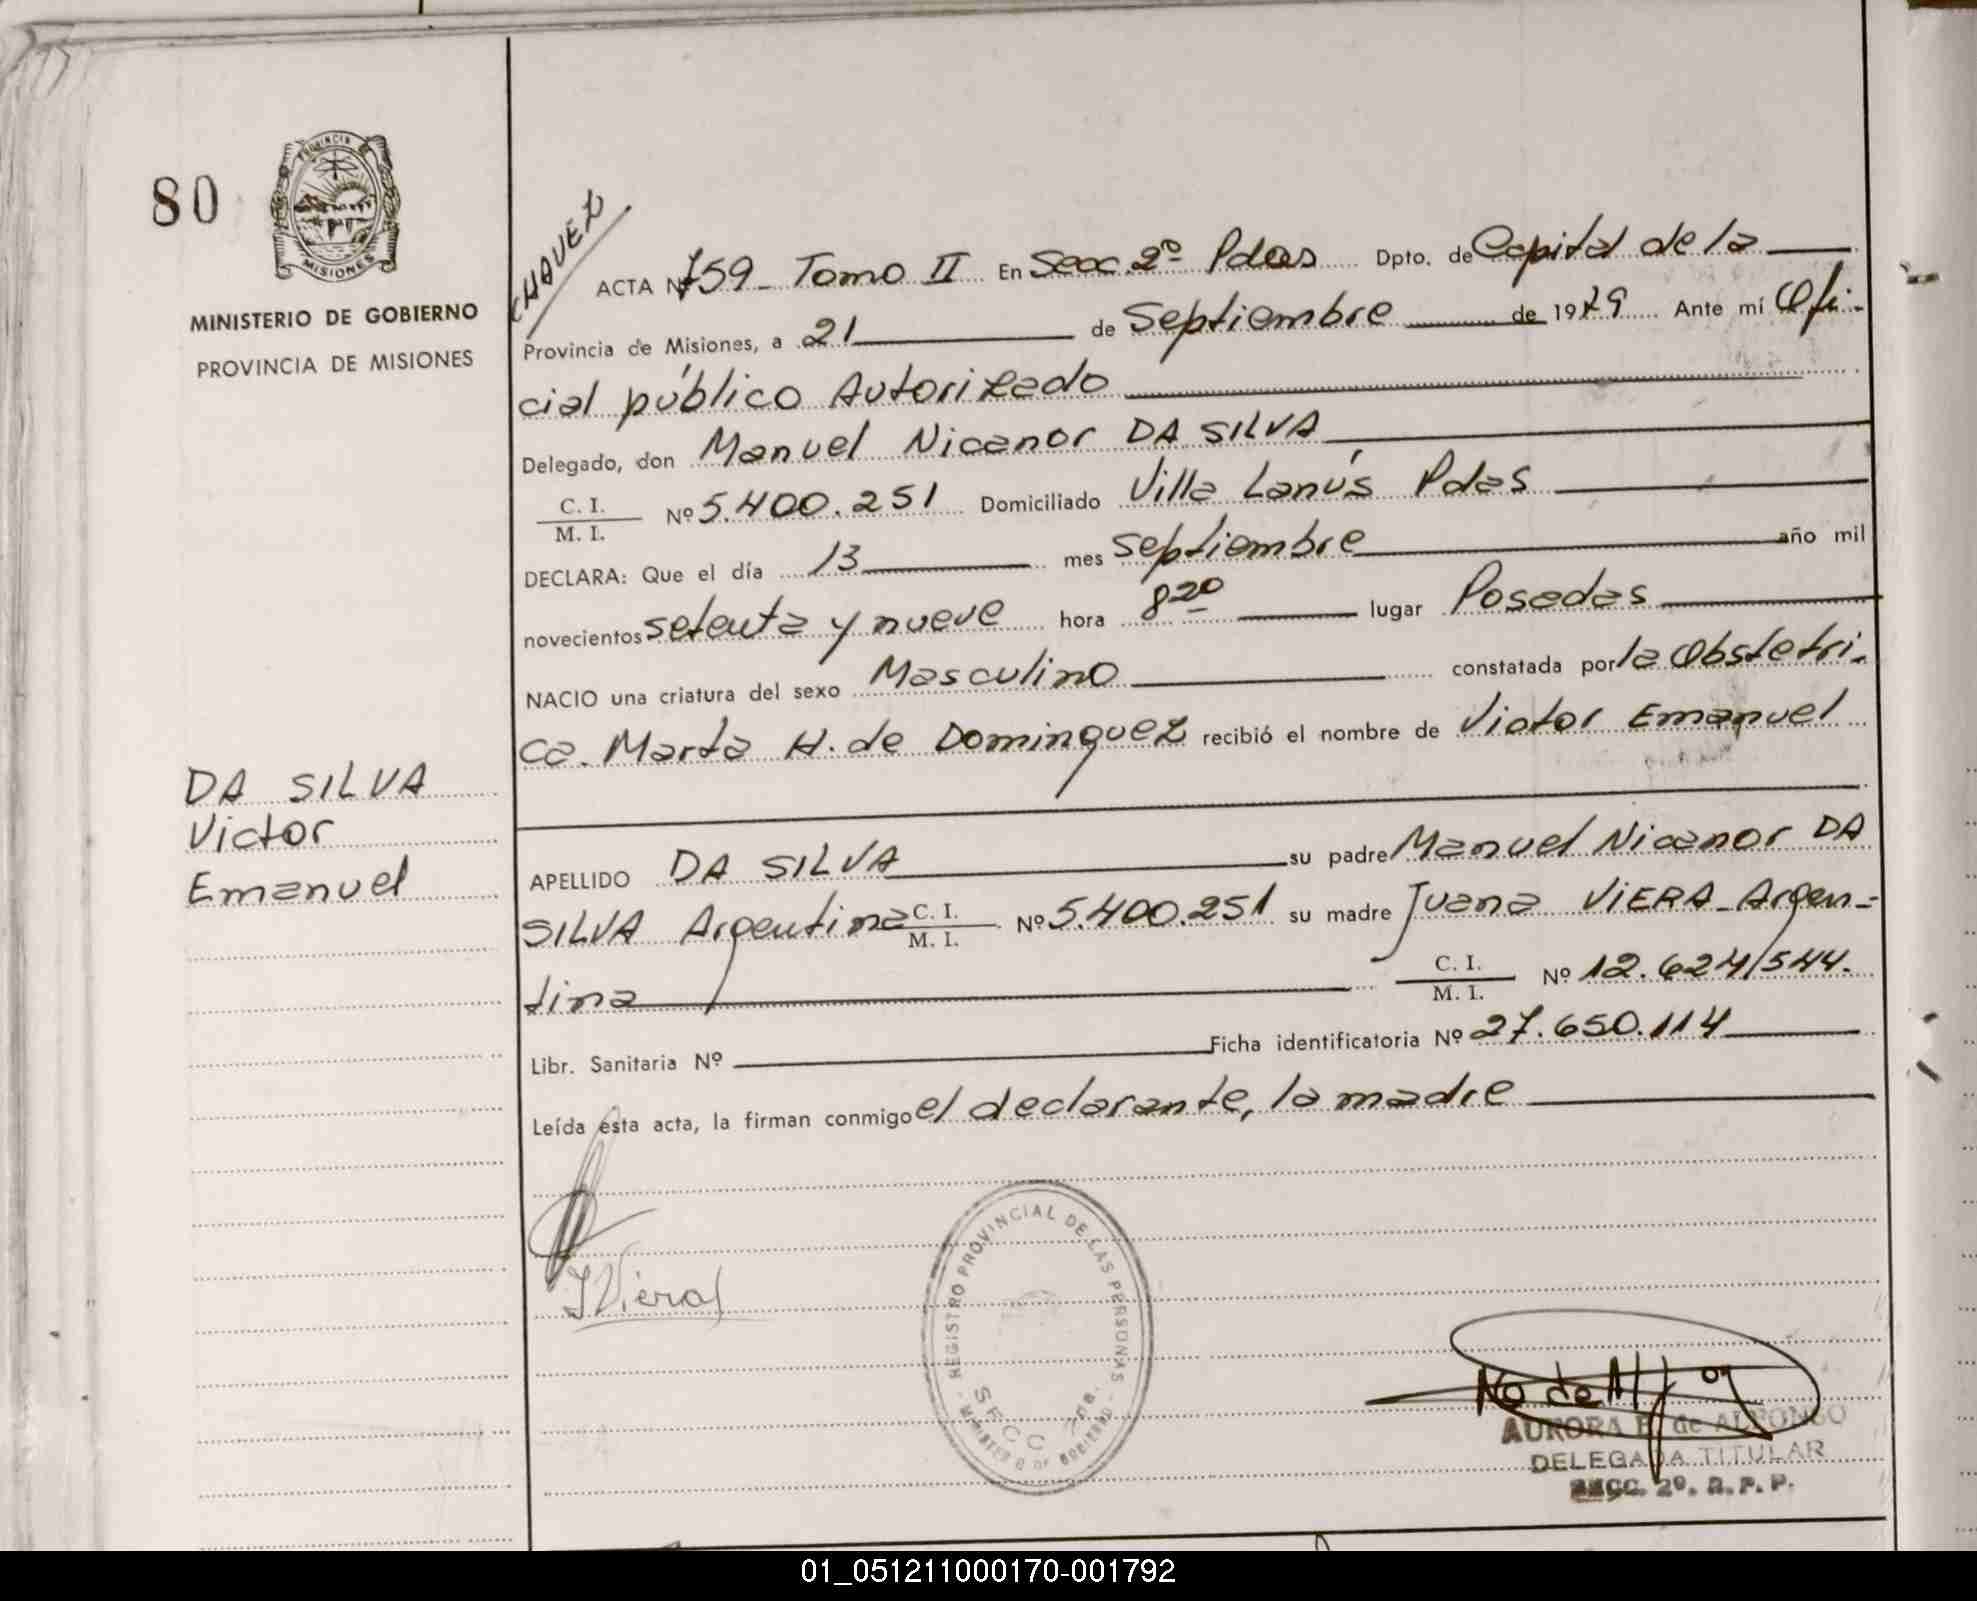 80
PROVINCIA DE
MISIONES
MINISTERIO DE GOBIERNO
PROVINCIA DE MISIONES
DA SILVA
Victor
Emanuel
CHAVEZ
ACTA Nº 759 - Tomo II En Secc. 2º Pdas Dpto. de Capital de la
Provincia de Misiones, a 21 de Septiembre de 1979 Ante mí Ofi-
cial público Autorizado
Delegado, don Manuel Nicanor DA SILVA
C. I.
M. I. Nº 5.400.251 Domiciliado Villa Lanús Pdas
DECLARA: Que el día 13 mes septiembre año mil
novecientos setenta y nueve hora 8 20 lugar Posadas
NACIO una criatura del sexo Masculino constatada por la Obstetri-
ca. Marta H. de Dominguez recibió el nombre de Victor Emanuel
APELLIDO DA SILVA su padre Manuel Nicanor DA
SILVA Argentina C. I. M. I. Nº 5.400.251 su madre Juana VIERA - Argen-
tina C. I. M. I. Nº 12.624/544.
Libr. Sanitaria Nº Ficha identificatoria Nº 27.650.114
Leída ésta acta, la firman conmigo el declarante, la madre
JViera
REGISTRO PROVINCIAL DE LAS PERSONAS
SECC
MINISTERIO DE GOBIERNO
AURORA de ALFONSO
DELEGADA TITULAR
SECC. 2º. R. P. P.
01_051211000170-001792